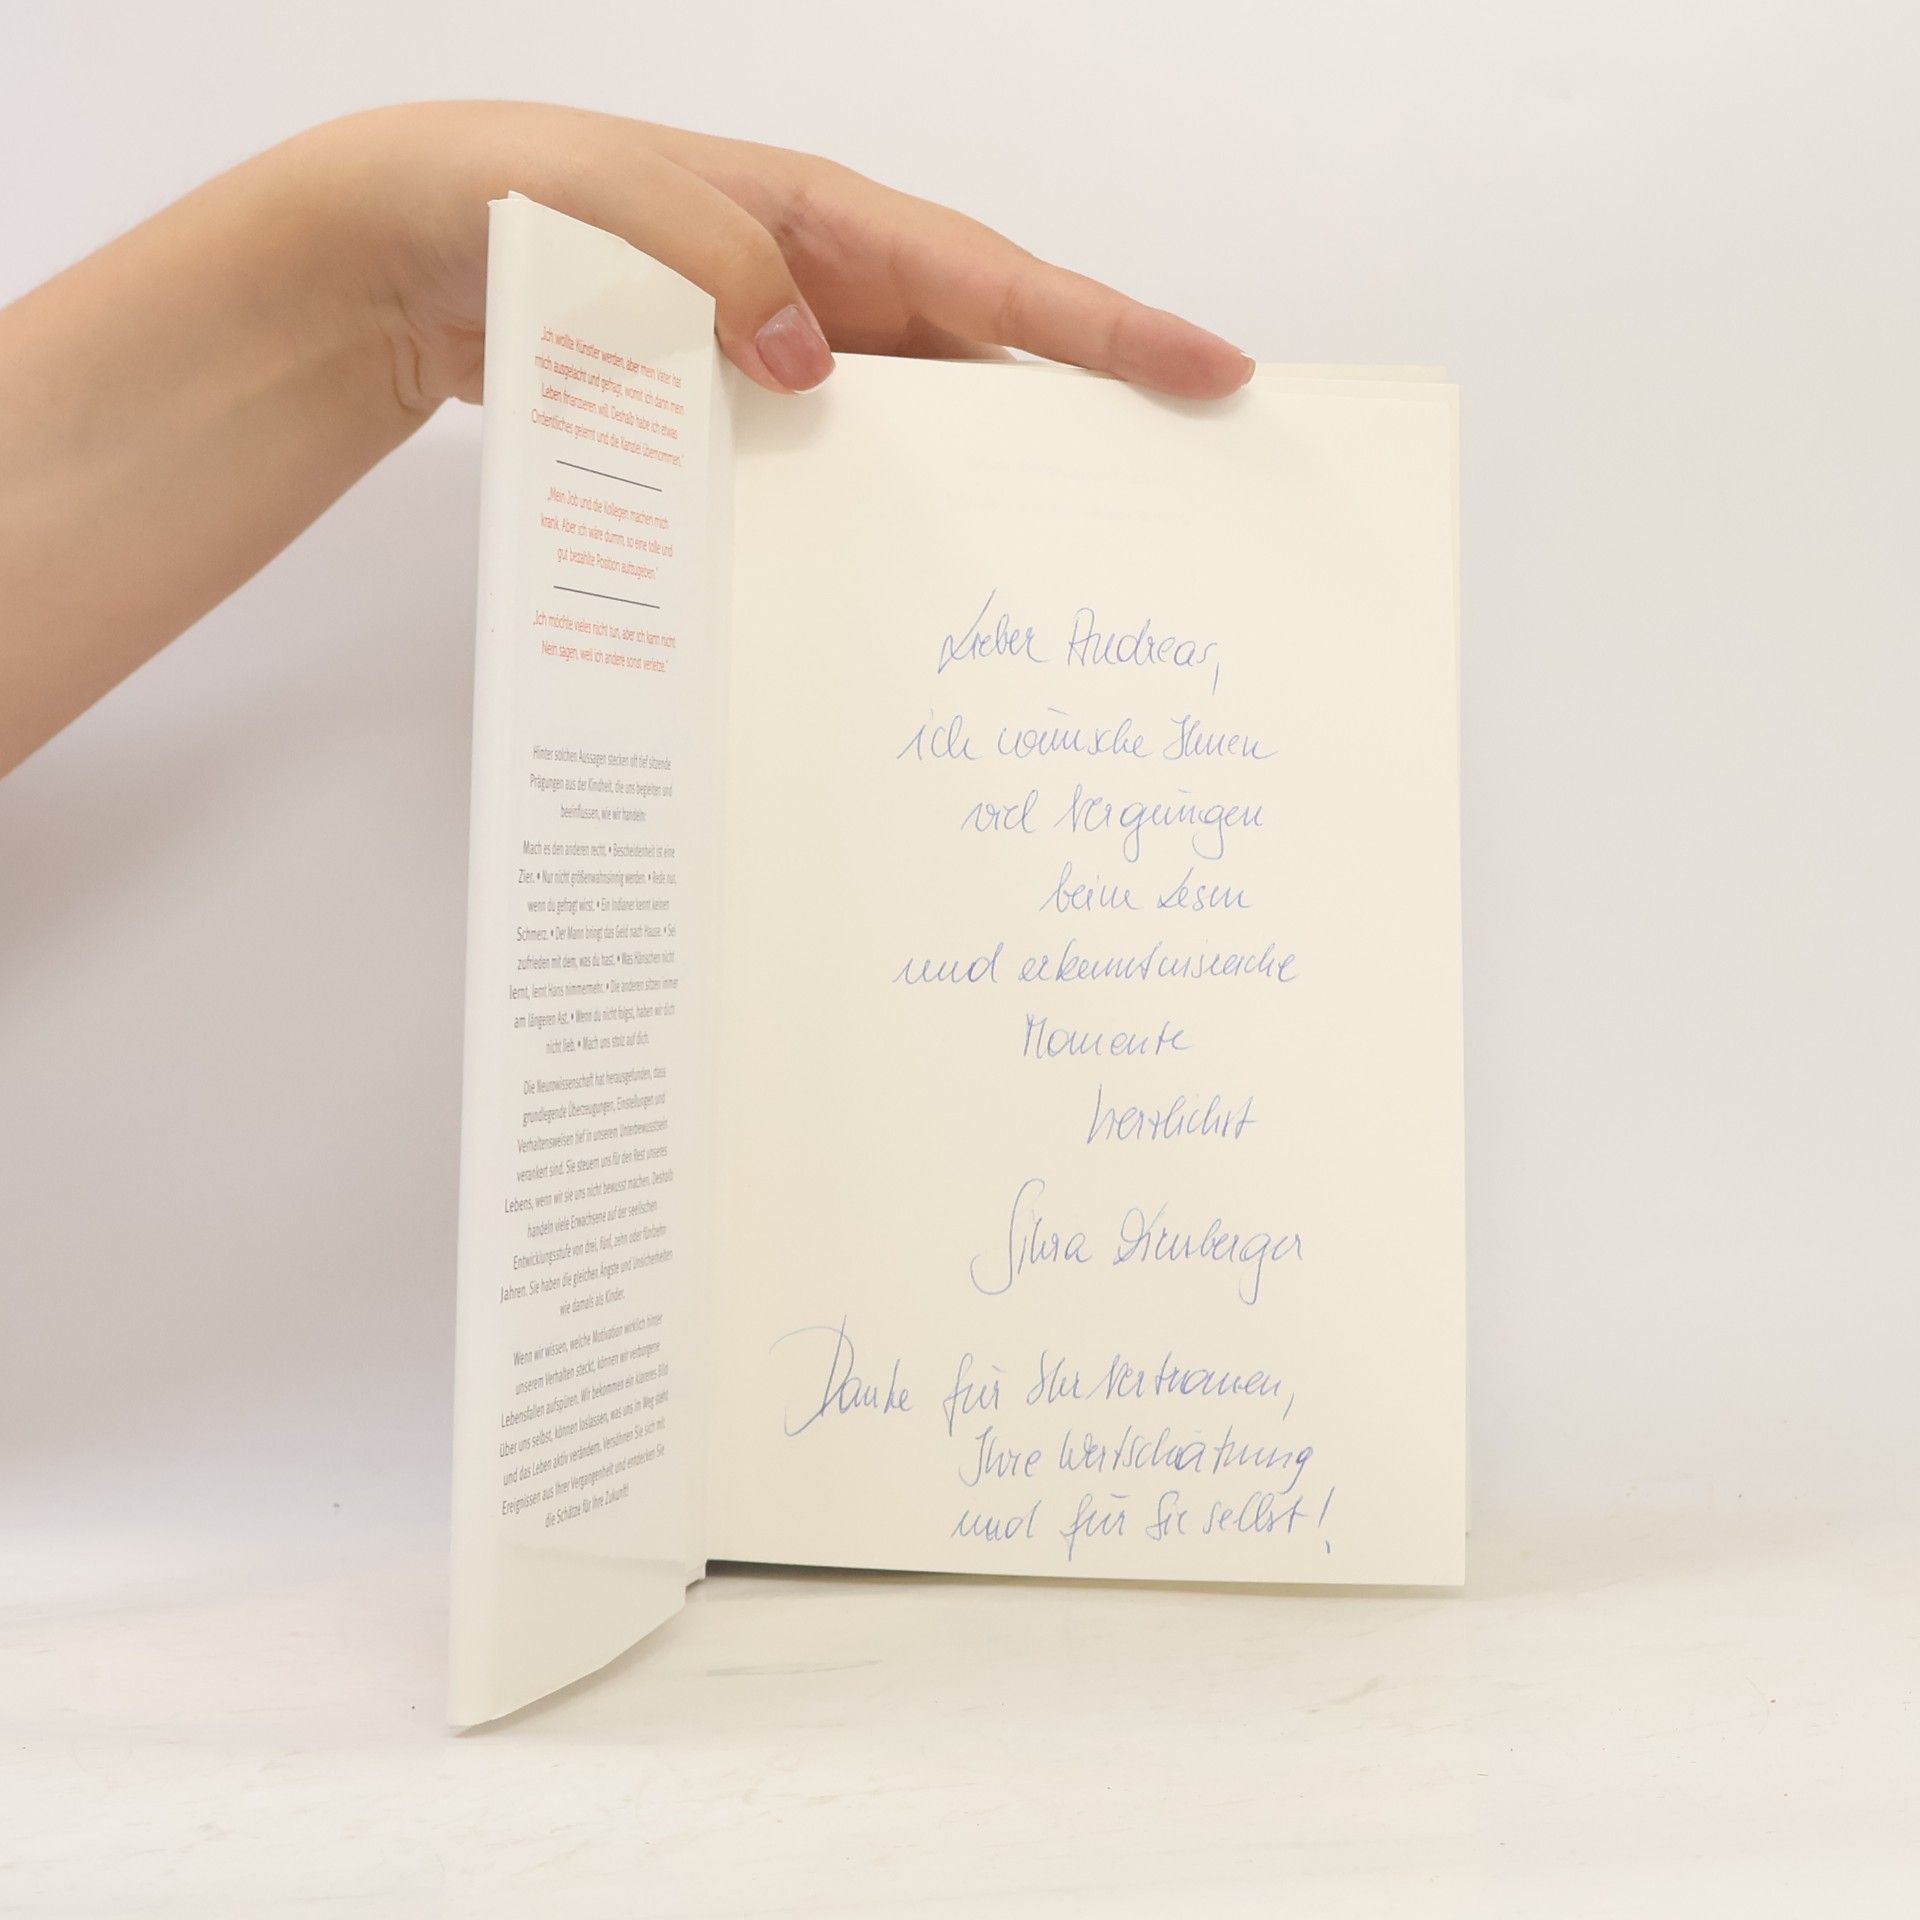 „Ich wollte Künstler werden, aber mein Vater hat
mich ausgelacht und gefragt, womit ich dann mein
Leben finanzieren will. Deshalb habe ich etwas
Ordentliches gelernt und die Kanzlei übernommen.“
„Mein Job und die Kollegen machen mich
krank. Aber ich wäre dumm, so eine tolle und
gut bezahlte Position aufzugeben.“
„Ich möchte vieles nicht tun, aber ich kann nicht
Nein sagen, weil ich andere sonst verletze.“
Hinter solchen Aussagen stecken oft tief sitzende
Prägungen aus der Kindheit, die uns begleiten und
beeinflussen, wie wir handeln:
Mach es den anderen recht. • Bescheidenheit ist eine
Zier. • Nur nicht größenwahnsinnig werden. • Rede nur,
wenn du gefragt wirst. • Ein Indianer kennt keinen
Schmerz. • Der Mann bringt das Geld nach Hause. • Sei
zufrieden mit dem, was du hast. • Was Hänschen nicht
lernt, lernt Hans nimmermehr. • Die anderen sitzen immer
am längeren Ast. • Wenn du nicht folgst, haben wir dich
nicht lieb. • Mach uns stolz auf dich.
Die Neurowissenschaft hat herausgefunden, dass
grundlegende Überzeugungen, Einstellungen und
Verhaltensweisen tief in unserem Unterbewusstsein
verankert sind. Sie steuern uns für den Rest unseres
Lebens, wenn wir sie uns nicht bewusst machen. Deshalb
handeln viele Erwachsene auf der seelischen
Entwicklungsstufe von drei, fünf, zehn oder fünfzehn
Jahren. Sie haben die gleichen Ängste und Unsicherheiten
wie damals als Kinder.
Wenn wir wissen, welche Motivation wirklich hinter
unserem Verhalten steckt, können wir verborgene
Lebensfallen aufspüren. Wir bekommen ein klareres Bild
über uns selbst, können loslassen, was uns im Weg steht
und das Leben aktiv verändern. Versöhnen Sie sich mit
Ereignissen aus Ihrer Vergangenheit und entdecken Sie
die Schätze für Ihre Zukunft!
Lieber Andreas,
ich wünsche Ihnen
viel Vergnügen
beim Lesen
und erkenntnisreiche
Momente
herzlichst
Silvia Dirnberger
Danke für Ihr Vertrauen,
Ihre Wertschätzung
und für Sie selbst!